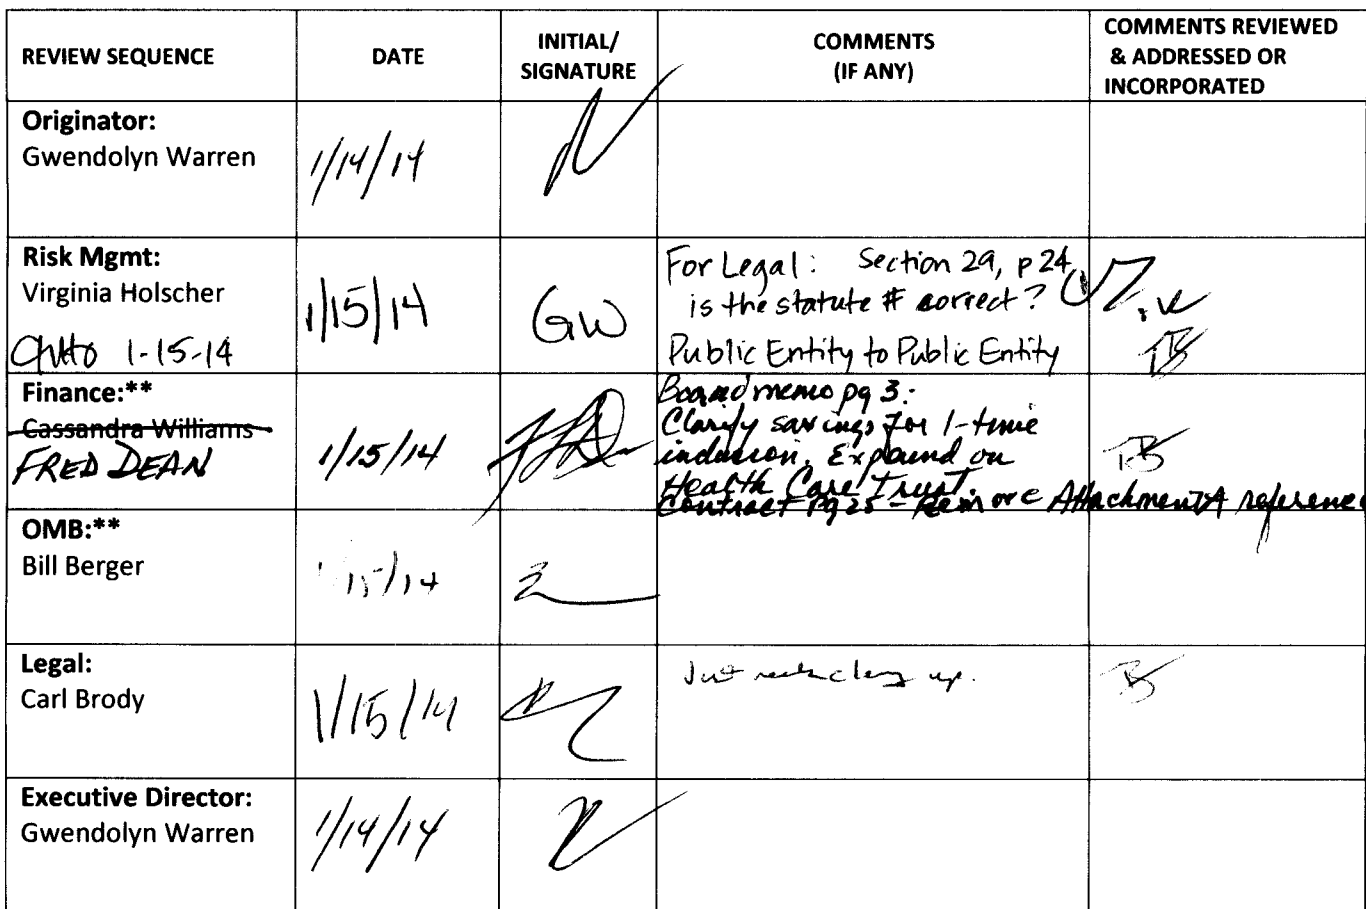 REVIEW SEQUENCE
DATE
INITIAL/
SIGNATURE
COMMENTS
(IF ANY)
COMMENTS REVIEWED
& ADDRESSED OR
INCORPORATED
Originator:
Gwendolyn Warren
1/14/14
Risk Mgmt:
Virginia Holscher
1-15-14
1/15/14
GW
For Legal: Section 29, p 24,
is the statute # correct?
Public Entity to Public Entity
Finance:**
Cassandra Williams
FRED DEAN
1/15/14
Board memo pg 3:
Clarify savings for 1-time
Expound on
Health Care Trust.
Contract Pg 25 - Attachment A reference
OMB:**
Bill Berger
15/14
Legal:
Carl Brody
1/15/14
up.
Executive Director:
Gwendolyn Warren
1/14/14